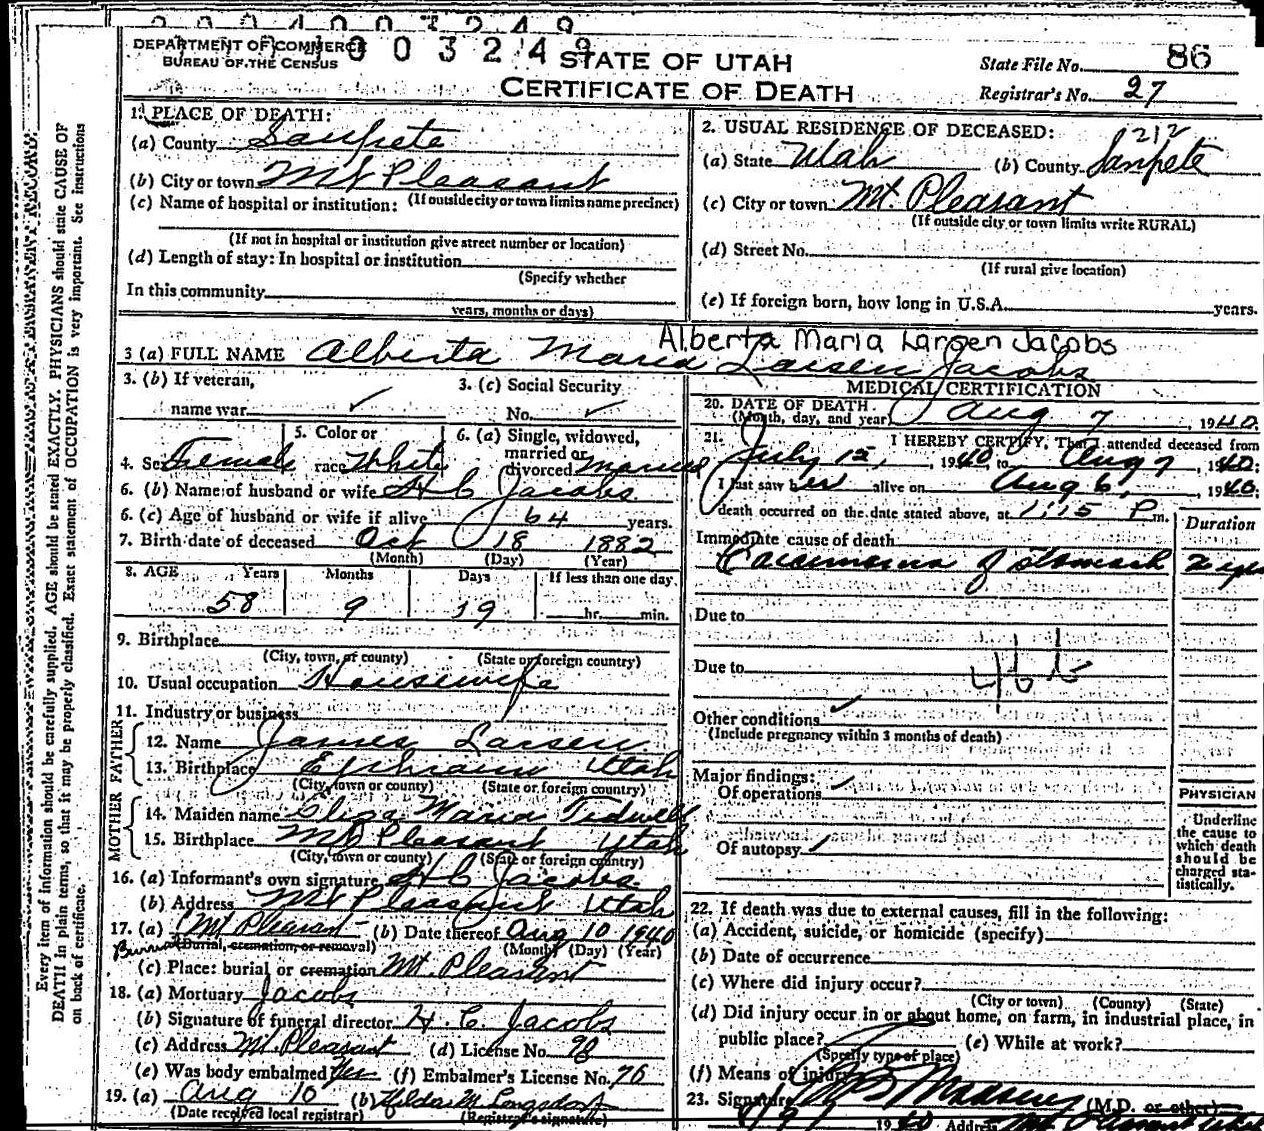 003249
DEPARTMENT OF COMMERCE
BUREAU OF THE CENSUS
STATE OF UTAH
CERTIFICATE OF DEATH
State File No. 86
Registrar's No. 27
Every item of information should be carefully supplied. AGE should be stated EXACTLY. PHYSICIANS should state CAUSE OF
DEATH in plain terms, so that it may be properly classified. Exact statement of OCCUPATION is very important. See instructions
on back of certificate.
1. PLACE OF DEATH:
(a) County Sanpete
(b) City or town Mt Pleasant
(c) Name of hospital or institution: (If outside city or town limits name precinct)
(If not in hospital or institution give street number or location)
(d) Length of stay: In hospital or institution
(Specify whether
In this community
years, months or days)
2. USUAL RESIDENCE OF DECEASED:
1212
(a) State Utah (b) County Sanpete
(c) City or town Mt. Pleasant
(If outside city or town limits write RURAL)
(d) Street No.
(If rural give location)
(e) If foreign born, how long in U.S.A. years.
Alberta Maria Larsen Jacobs
3 (a) FULL NAME Alberta Maria Larsen Jacobs
3. (b) If veteran,
name war
3. (c) Social Security
No.
4. Sex Female
5. Color or
race White
6. (a) Single, widowed,
married or
divorced Married
6. (b) Name of husband or wife H C Jacobs
6. (c) Age of husband or wife if alive 64 years.
7. Birth date of deceased Oct 18 1882
(Month) (Day) (Year)
8. AGE Years Months Days If less than one day
58 9 19 hr. min.
9. Birthplace
(City, town, or county) (State or foreign country)
10. Usual occupation Housewife
11. Industry or business
FATHER
12. Name James Larsen
13. Birthplace Ephraim Utah
(City, town or county) (State or foreign country)
MOTHER
14. Maiden name Eliza Maria Tidwell
15. Birthplace Mt Pleasant Utah
(City, town or county) (State or foreign country)
16. (a) Informant's own signature H C Jacobs
(b) Address Mt Pleasant Utah
17. (a) Mt Pleasant (b) Date thereof Aug 10 1940
Burial (Burial, cremation, or removal) (Month) (Day) (Year)
(c) Place: burial or cremation Mt. Pleasant
18. (a) Mortuary Jacobs
(b) Signature of funeral director H. C. Jacobs
(c) Address Mt. Pleasant (d) License No. 98
(e) Was body embalmed Yes (f) Embalmer's License No. 76
19. (a) Aug 10 (b) Hilda M Longsdorf
(Date received local registrar) (Registrar's signature)
MEDICAL CERTIFICATION
20. DATE OF DEATH
(Month, day, and year) Aug 7, 1940.
21. I HEREBY CERTIFY, That I attended deceased from
July 12, 1940, to Aug 7, 1940;
I last saw her alive on Aug 6, 1940;
death occurred on the date stated above, at 1:15 P m.
Duration
Immediate cause of death
Carcinoma of stomach 2 yrs
Due to
Due to 46b
Other conditions
(Include pregnancy within 3 months of death)
Major findings:
Of operations
Of autopsy
PHYSICIAN
Underline
the cause to
which death
should be
charged sta-
tistically.
22. If death was due to external causes, fill in the following:
(a) Accident, suicide, or homicide (specify)
(b) Date of occurrence
(c) Where did injury occur?
(City or town) (County) (State)
(d) Did injury occur in or about home, on farm, in industrial place, in
public place? (e) While at work?
(Specify type of place)
(f) Means of injury
23. Signature (M.D. or other)
1940 Address Mt Pleasant Utah